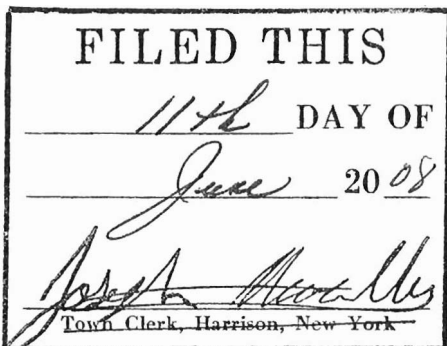 FILED THIS
11th DAY OF
June 2008
Joseph
Town Clerk, Harrison, New York